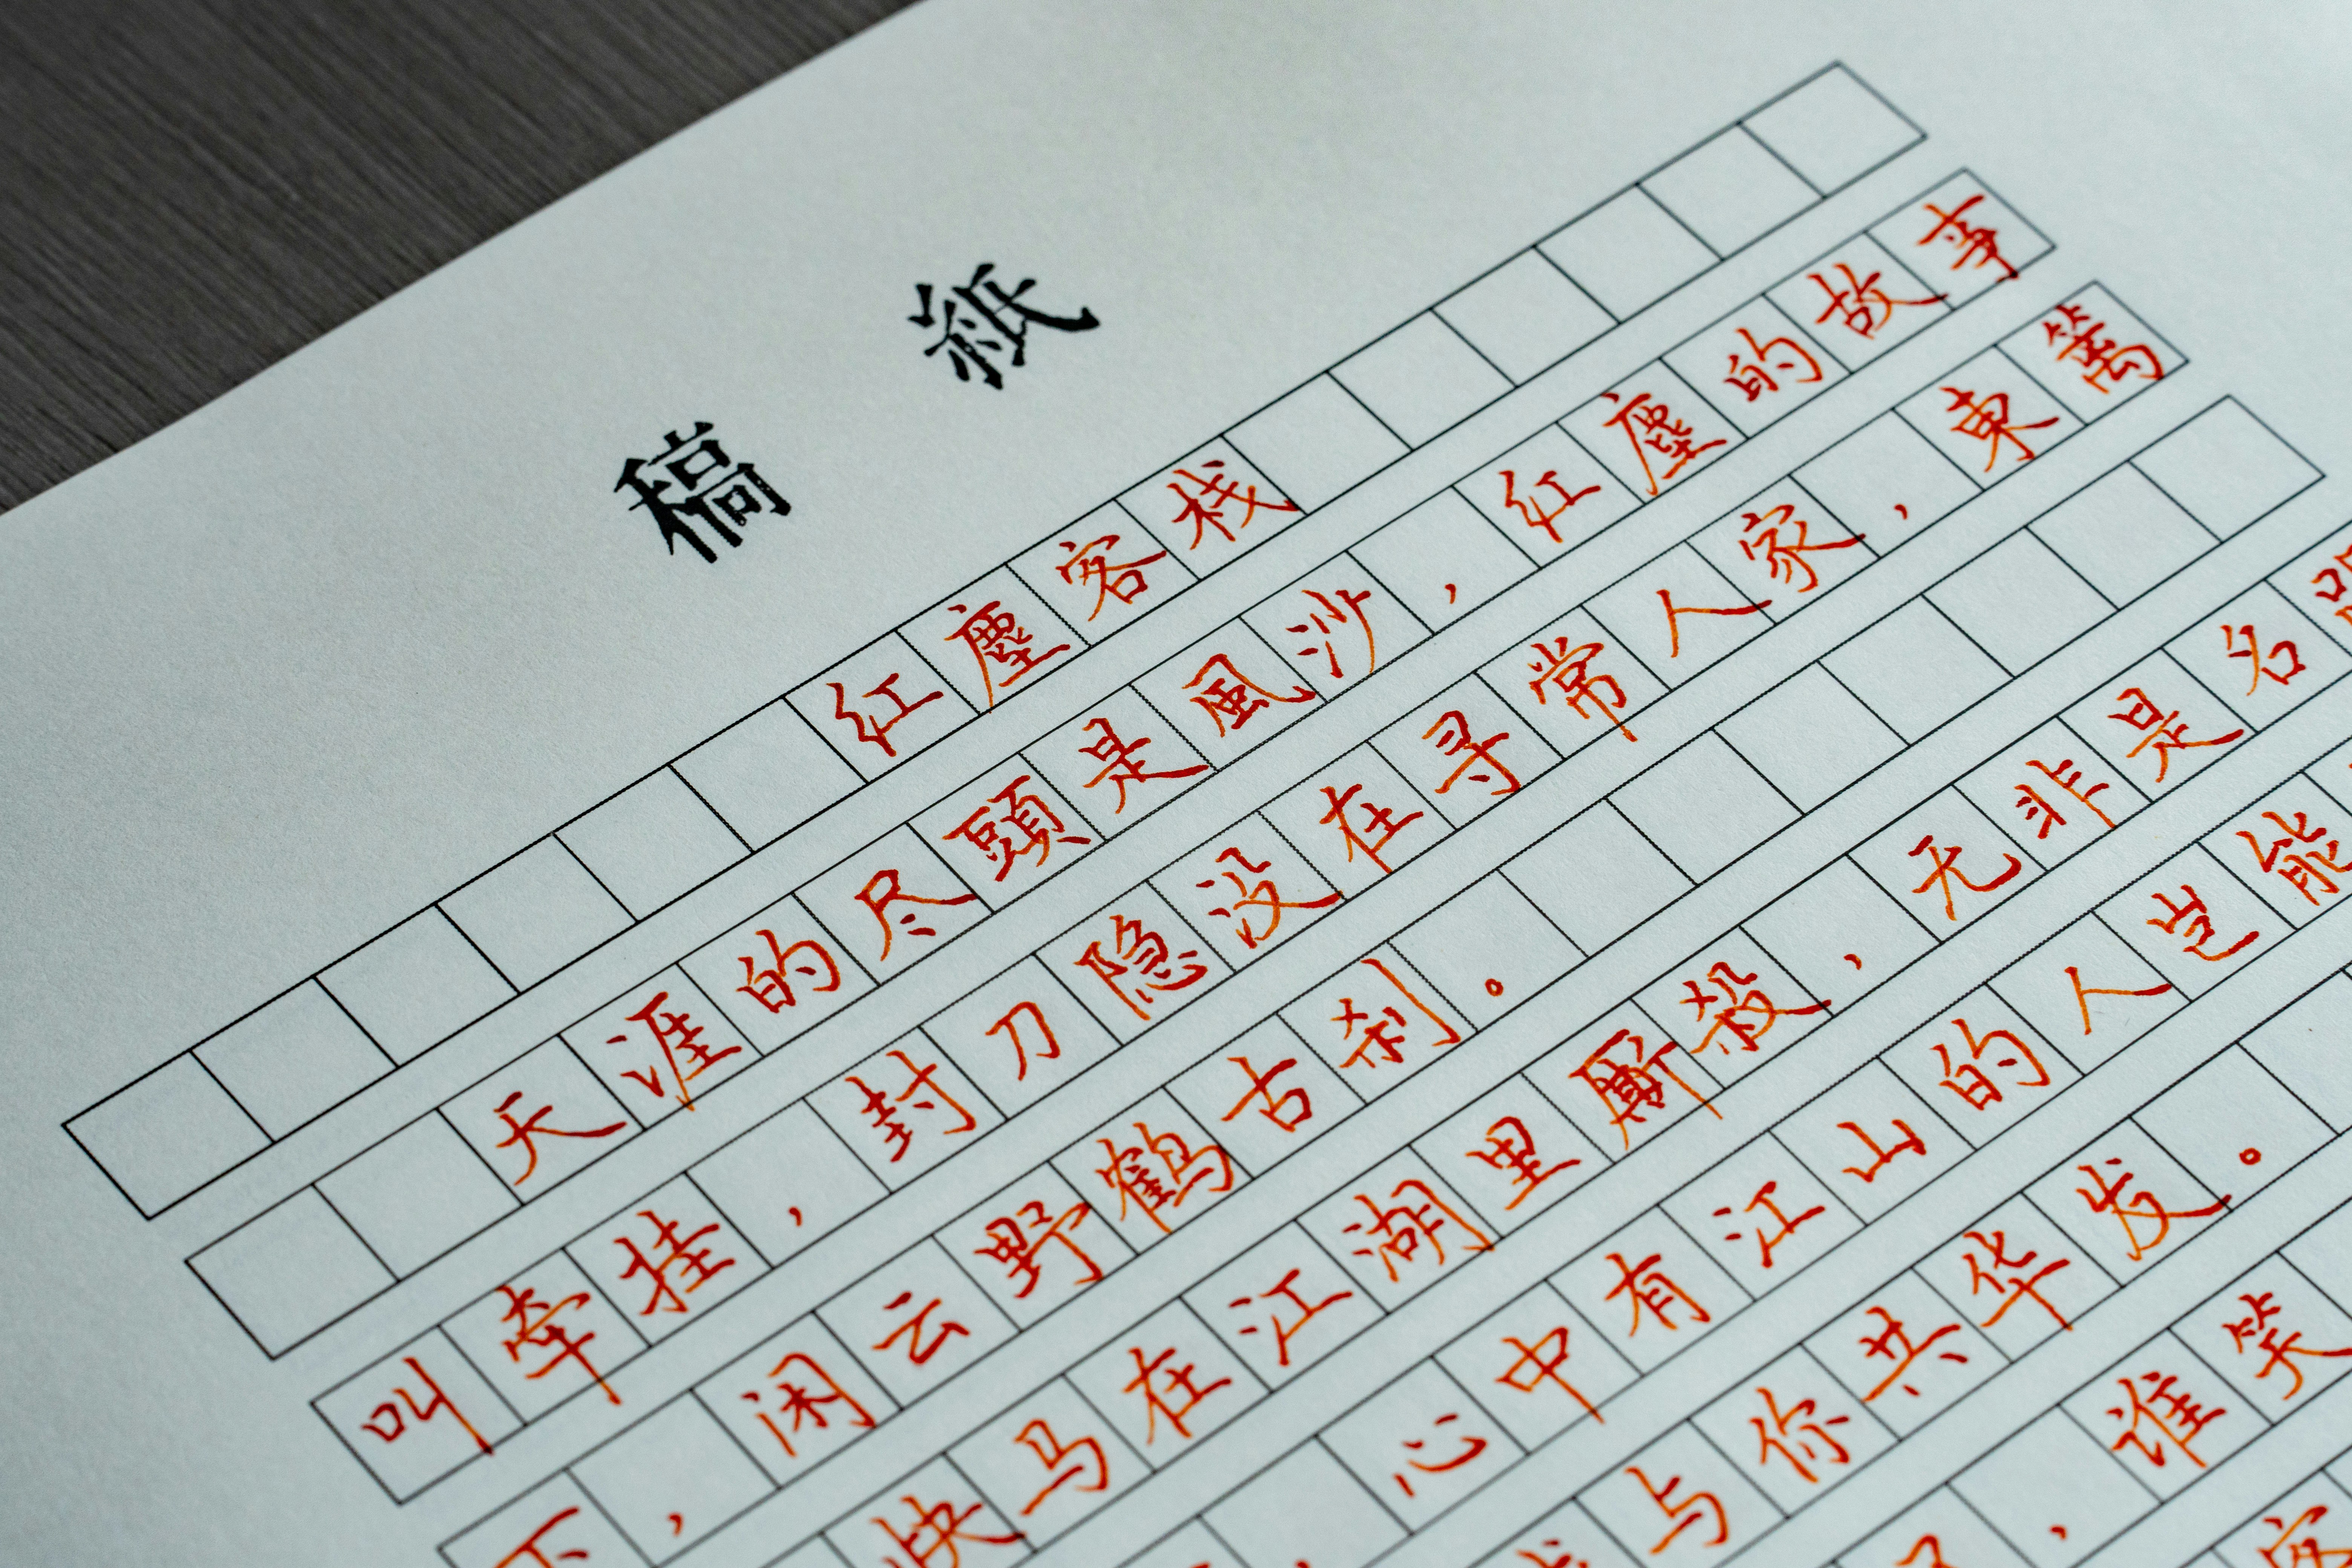 稿紙
红塵客栈
天涯的尽頭是風沙，红塵的故事
叫牵挂，封刀隐没在寻常人家，東篱
下，闲云野鹤古刹。
快马在江湖里厮殺，无非是名
心中有江山的人岂能
与你共华发。
，谁笑